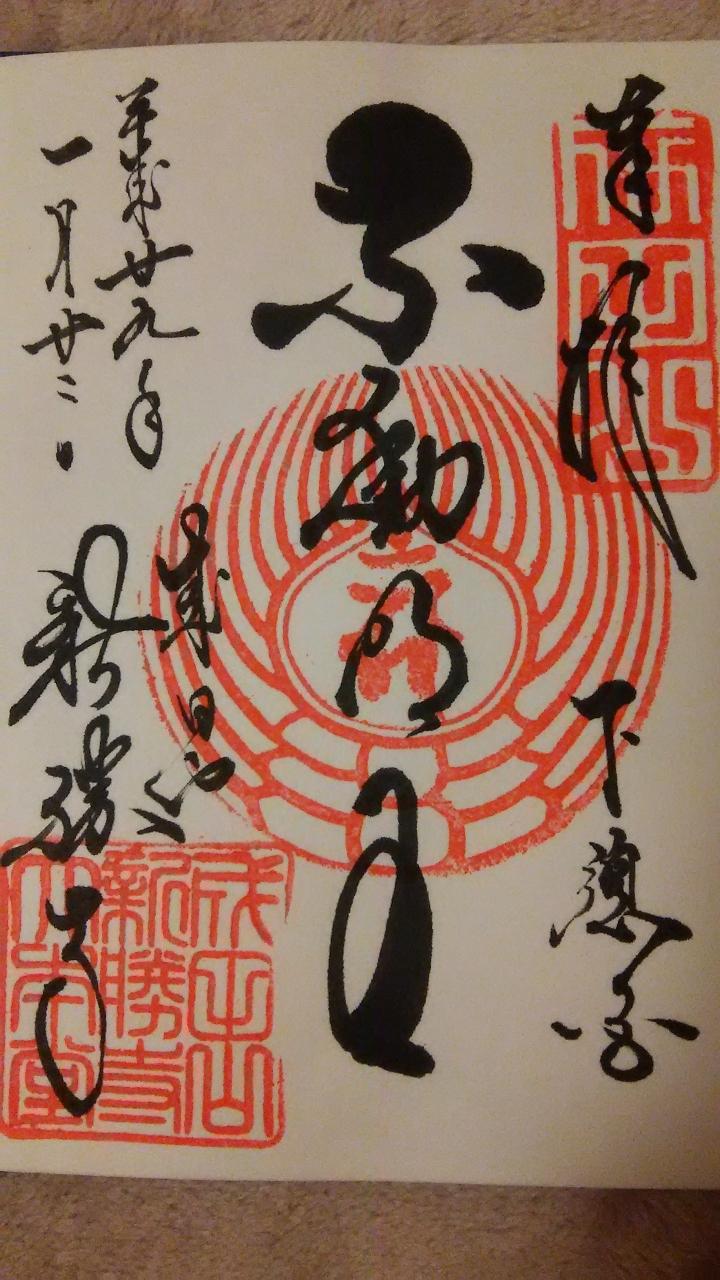 奉拝
下総國
不動明王
成田山
新勝寺
平成廿九年
一月廿二日
成田山
新勝寺
大本堂